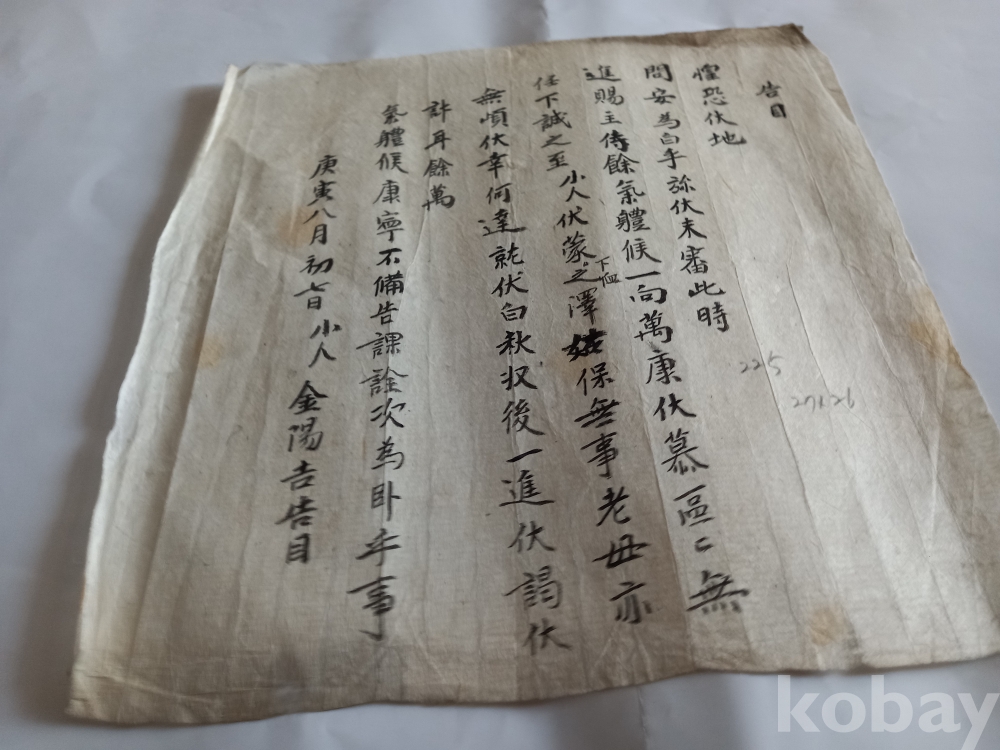 告目
惶恐伏地
問安為白乎弥伏未審此時
進賜主侍餘氣體候一向萬康伏慕區〻無
任下誠之至小人伏蒙下恤之澤 保無事老母亦
無頉伏幸何達就伏白秋収後一進伏謁伏
計耳餘萬
氣體候康寧不備告課詮次為卧乎事
庚寅八月初七日小人 金陽吉告目
225
kobay